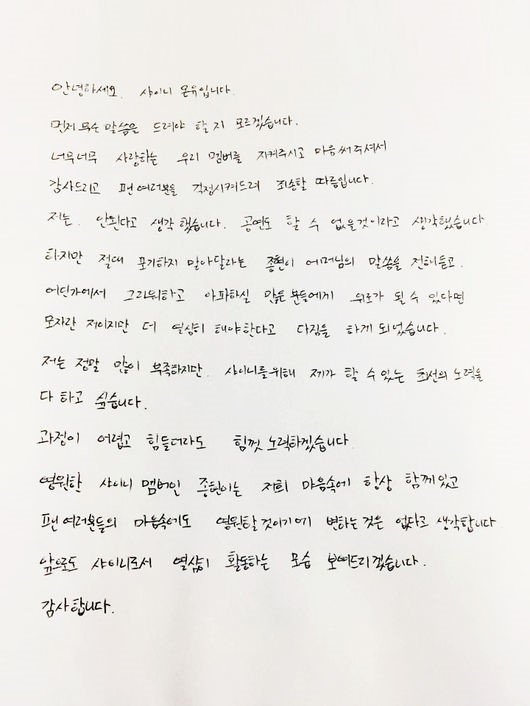 안녕하세요. 샤이니 온유입니다.
먼저 무슨 말씀을 드려야 할 지 모르겠습니다.
너무너무 사랑하는 우리 멤버를 지켜주시고 마음 써 주셔서
감사드리고 팬 여러분들 걱정시켜드려 죄송할 따름입니다.
저는. 안된다고 생각했습니다. 공연도 할 수 없을 것이라고 생각했습니다
하지만 절대 포기하지 말아달라는 종현이 어머님의 말씀을 전해듣고.
어딘가에서 그리워하고 아파하실 많은 분들에게 위로가 될 수 있다면
모자란 저이지만 더 열심히 해야한다고 다짐을 하게 되었습니다.
저는 정말 많이 부족하지만. 샤이니를 위해 제가 할 수 있는 최선의 노력을
다 하고 싶습니다.
과정이 어렵고 힘들더라도 힘껏 노력하겠습니다
영원한 샤이니 멤버인 종현이는 저희 마음속에 항상 함께 있고
팬 여러분들의 마음속에도 영원할 것이기에 변하는 것은 없다고 생각합니다
앞으로도 샤이니로서 열심히 활동하는 모습 보여드리겠습니다.
감사합니다.